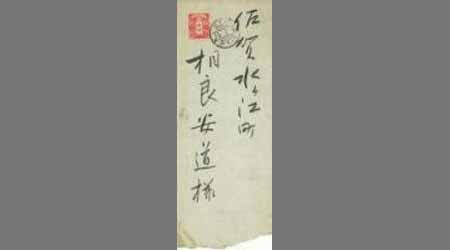 佐賀水ヶ江町
相良安道様